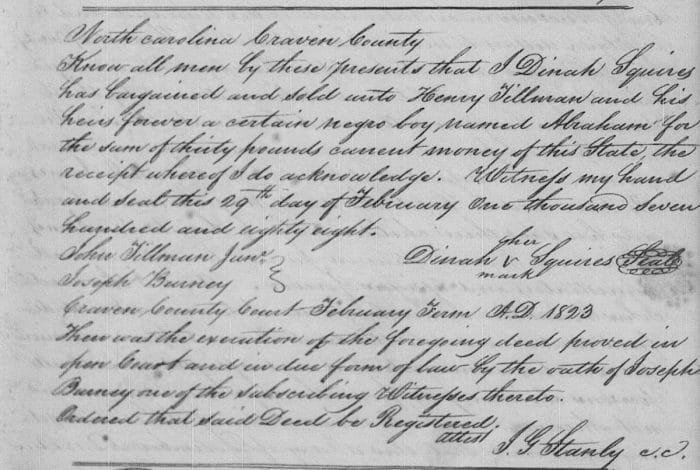 North Carolina Craven County
Know all men by these presents that I Dinah Squires
has bargained and sold unto Henry Tillman and his
heirs forever a certain negro boy named Abraham for
the sum of thirty pounds current money of this State, the
receipt whereof I do acknowledge. Witness my hand
and seal this 29th day of February One thousand seven
hundred and eighty eight.
John Tillman Junr.
her
Dinah v Squires Seal
mark
Joseph Burney
Craven County Court February Term A.D. 1823
Then was the execution of the foregoing deed proved in
open Court and in due form of law by the oath of Joseph
Burney one of the subscribing Witnesses thereto.
Ordered that said Deed be Registered.
attest
J. G. Stanly c.c.